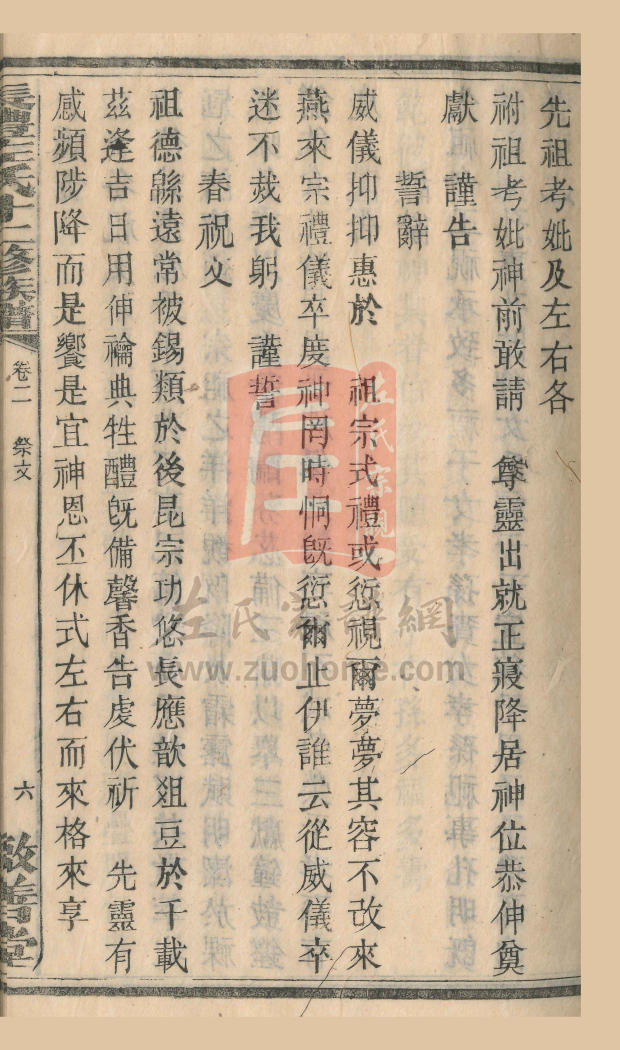 先祖考妣及左右各
祔祖考妣神前敢請　尊靈出就正寢降居神位恭伸奠
獻　謹告
誓辭
威儀抑抑惠於　祖宗式禮或愆視爾夢夢其容不改來
燕來宗禮儀卒度神罔時恫旣愆爾止伊誰云從威儀卒
迷不烖我躬　謹誓
春祝文
祖德緜遠常被錫類於後昆宗功悠長應歆俎豆於千載
茲逢吉日用伸禴典牲醴旣備馨香告虔伏祈　先靈有
感頻陟降而是饗是宜神恩丕休式左右而來格來享
長豐左氏十二修族譜
卷二　祭文
六
啟善堂
左氏宗親
左氏宗譜網
www.zuohome.com